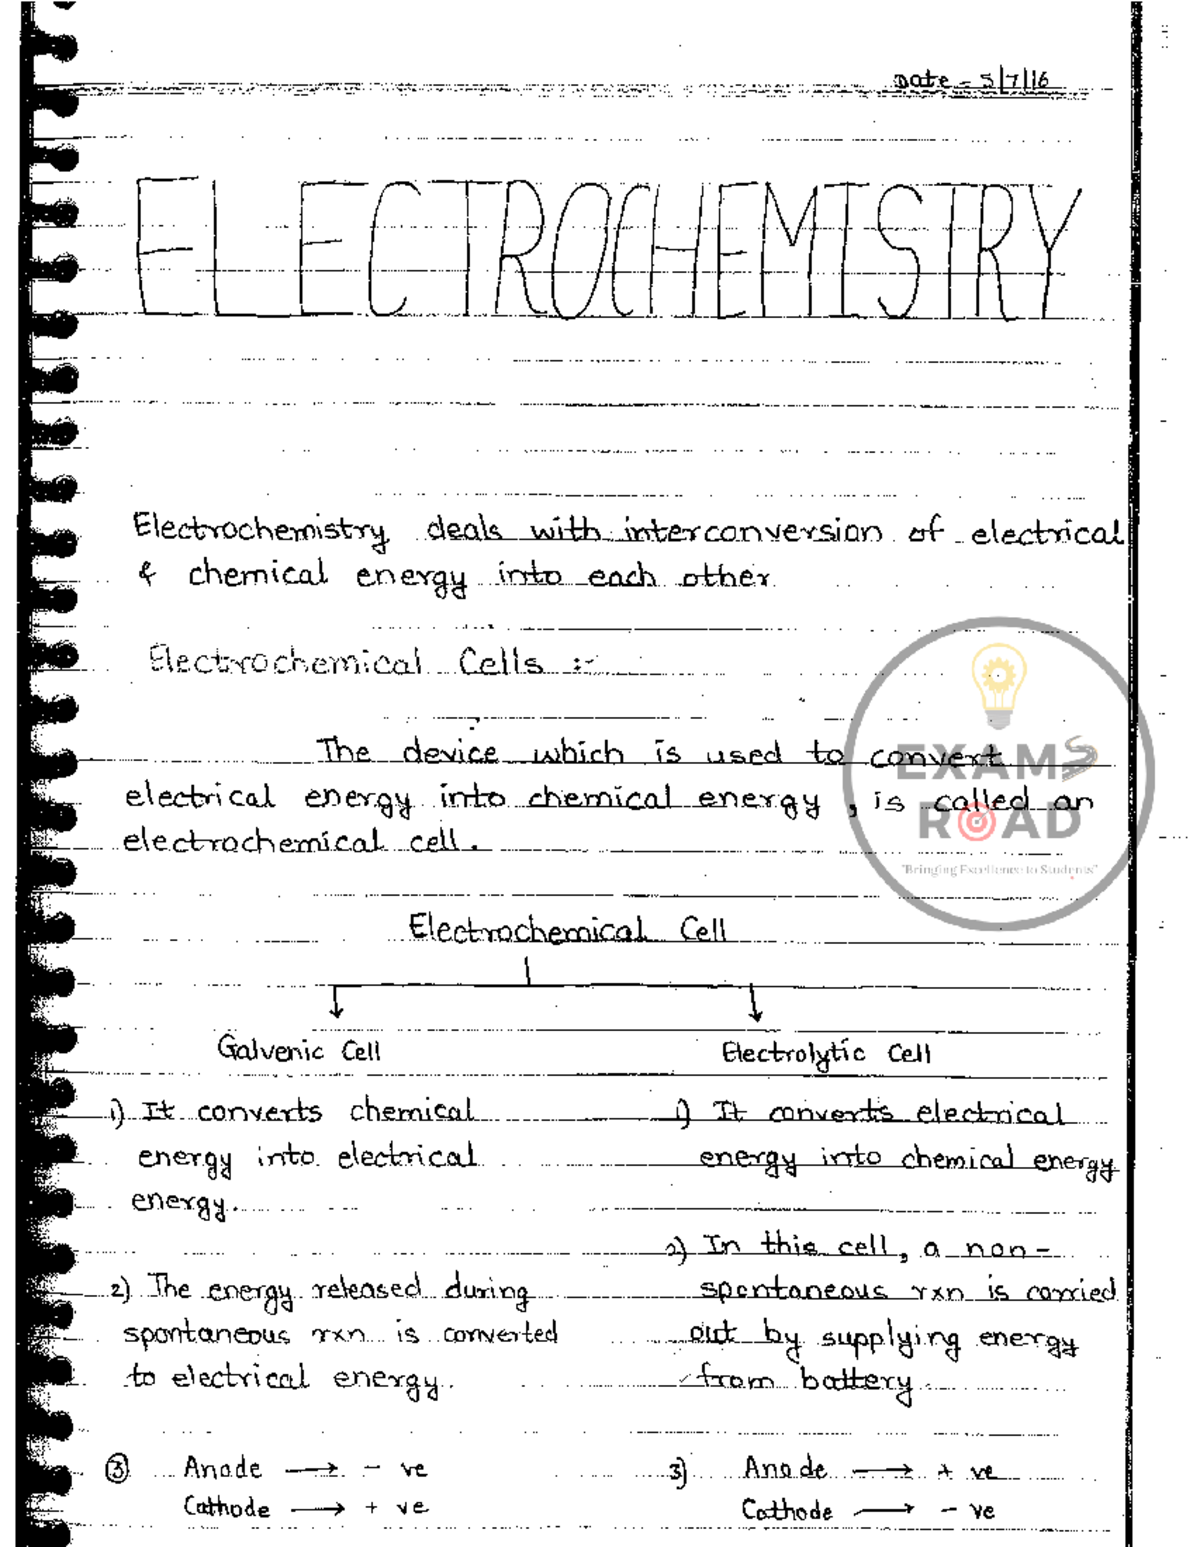 Date - 5/7/16
ELECTROCHEMISTRY
Electrochemistry deals with interconversion of electrical
& chemical energy into each other.
Electrochemical Cells :-
The device which is used to convert
electrical energy into chemical energy, is called an
electrochemical cell.
EXAMS
ROAD
"Bringing Excellence to Students"
Electrochemical Cell
Galvenic Cell
Electrolytic Cell
1) It converts chemical
energy into electrical
energy.
2) The energy released during
spontaneous rxn is converted
to electrical energy.
③ Anode → - ve
Cathode → + ve
1) It converts electrical
energy into chemical energy
2) In this cell, a non-
spontaneous rxn is carried
out by supplying energy
from battery.
3) Anode → + ve
Cathode → - ve